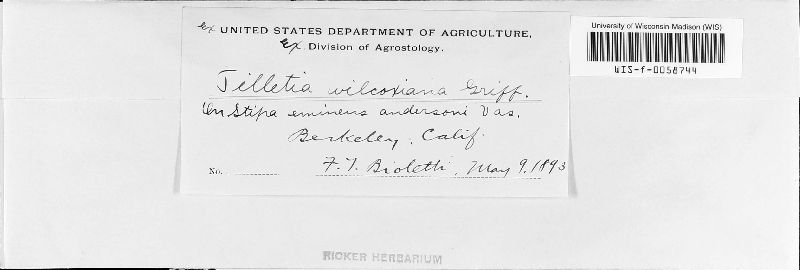 ex UNITED STATES DEPARTMENT OF AGRICULTURE,
ex Division of Agrostology.
Tilletia wilcoxiana Griff.
On Stipa eminens andersoni Vas.
Berkeley, Calif.
No. F. T. Bioletti, May 9, 1893
University of Wisconsin Madison (WIS)
WIS-f-0058744
RICKER HERBARIUM